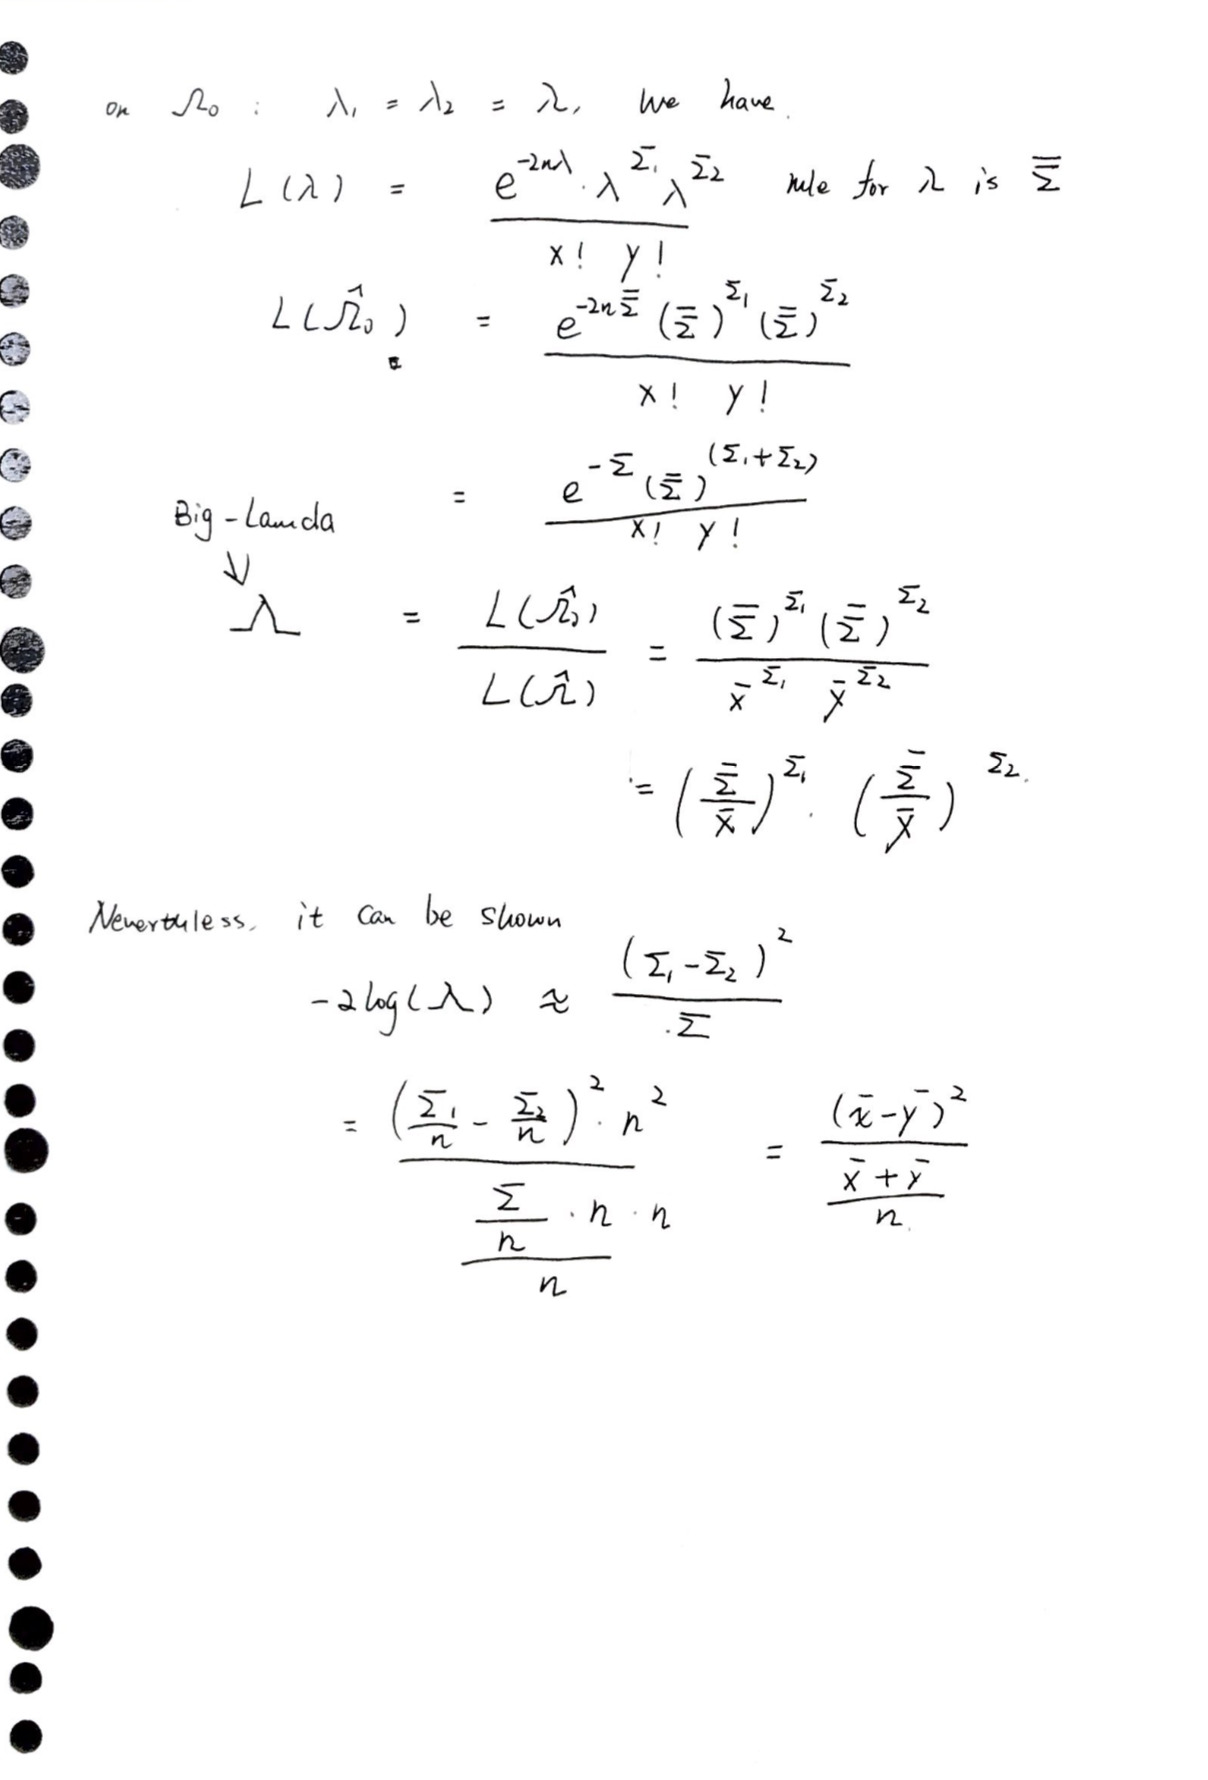 on Ω₀ : λ₁ = λ₂ = λ, we have.
L(λ) = e^{-2nλ} · λ^{Σ₁} λ^{Σ₂} / x! y! mle for λ is Σ̿
L(Ω̂₀) = e^{-2nΣ̿} (Σ̿)^{Σ₁} (Σ̿)^{Σ₂} / x! y!
= e^{-Σ} (Σ̿)^{(Σ₁+Σ₂)} / x! y!
Big-Lamda
↓
Λ = L(Ω̂₀) / L(Ω̂) = (Σ̿)^{Σ₁} (Σ̿)^{Σ₂} / x̄^{Σ₁} ȳ^{Σ₂}
= (Σ̿ / x̄)^{Σ₁} · (Σ̿ / ȳ)^{Σ₂}.
Neverthless, it can be shown
-2log(Λ) ≈ (Σ₁-Σ₂)² / Σ
= (Σ₁/n - Σ₂/n)² · n² / (Σ/n · n · n / n) = (x̄-ȳ)² / (x̄+ȳ / n)